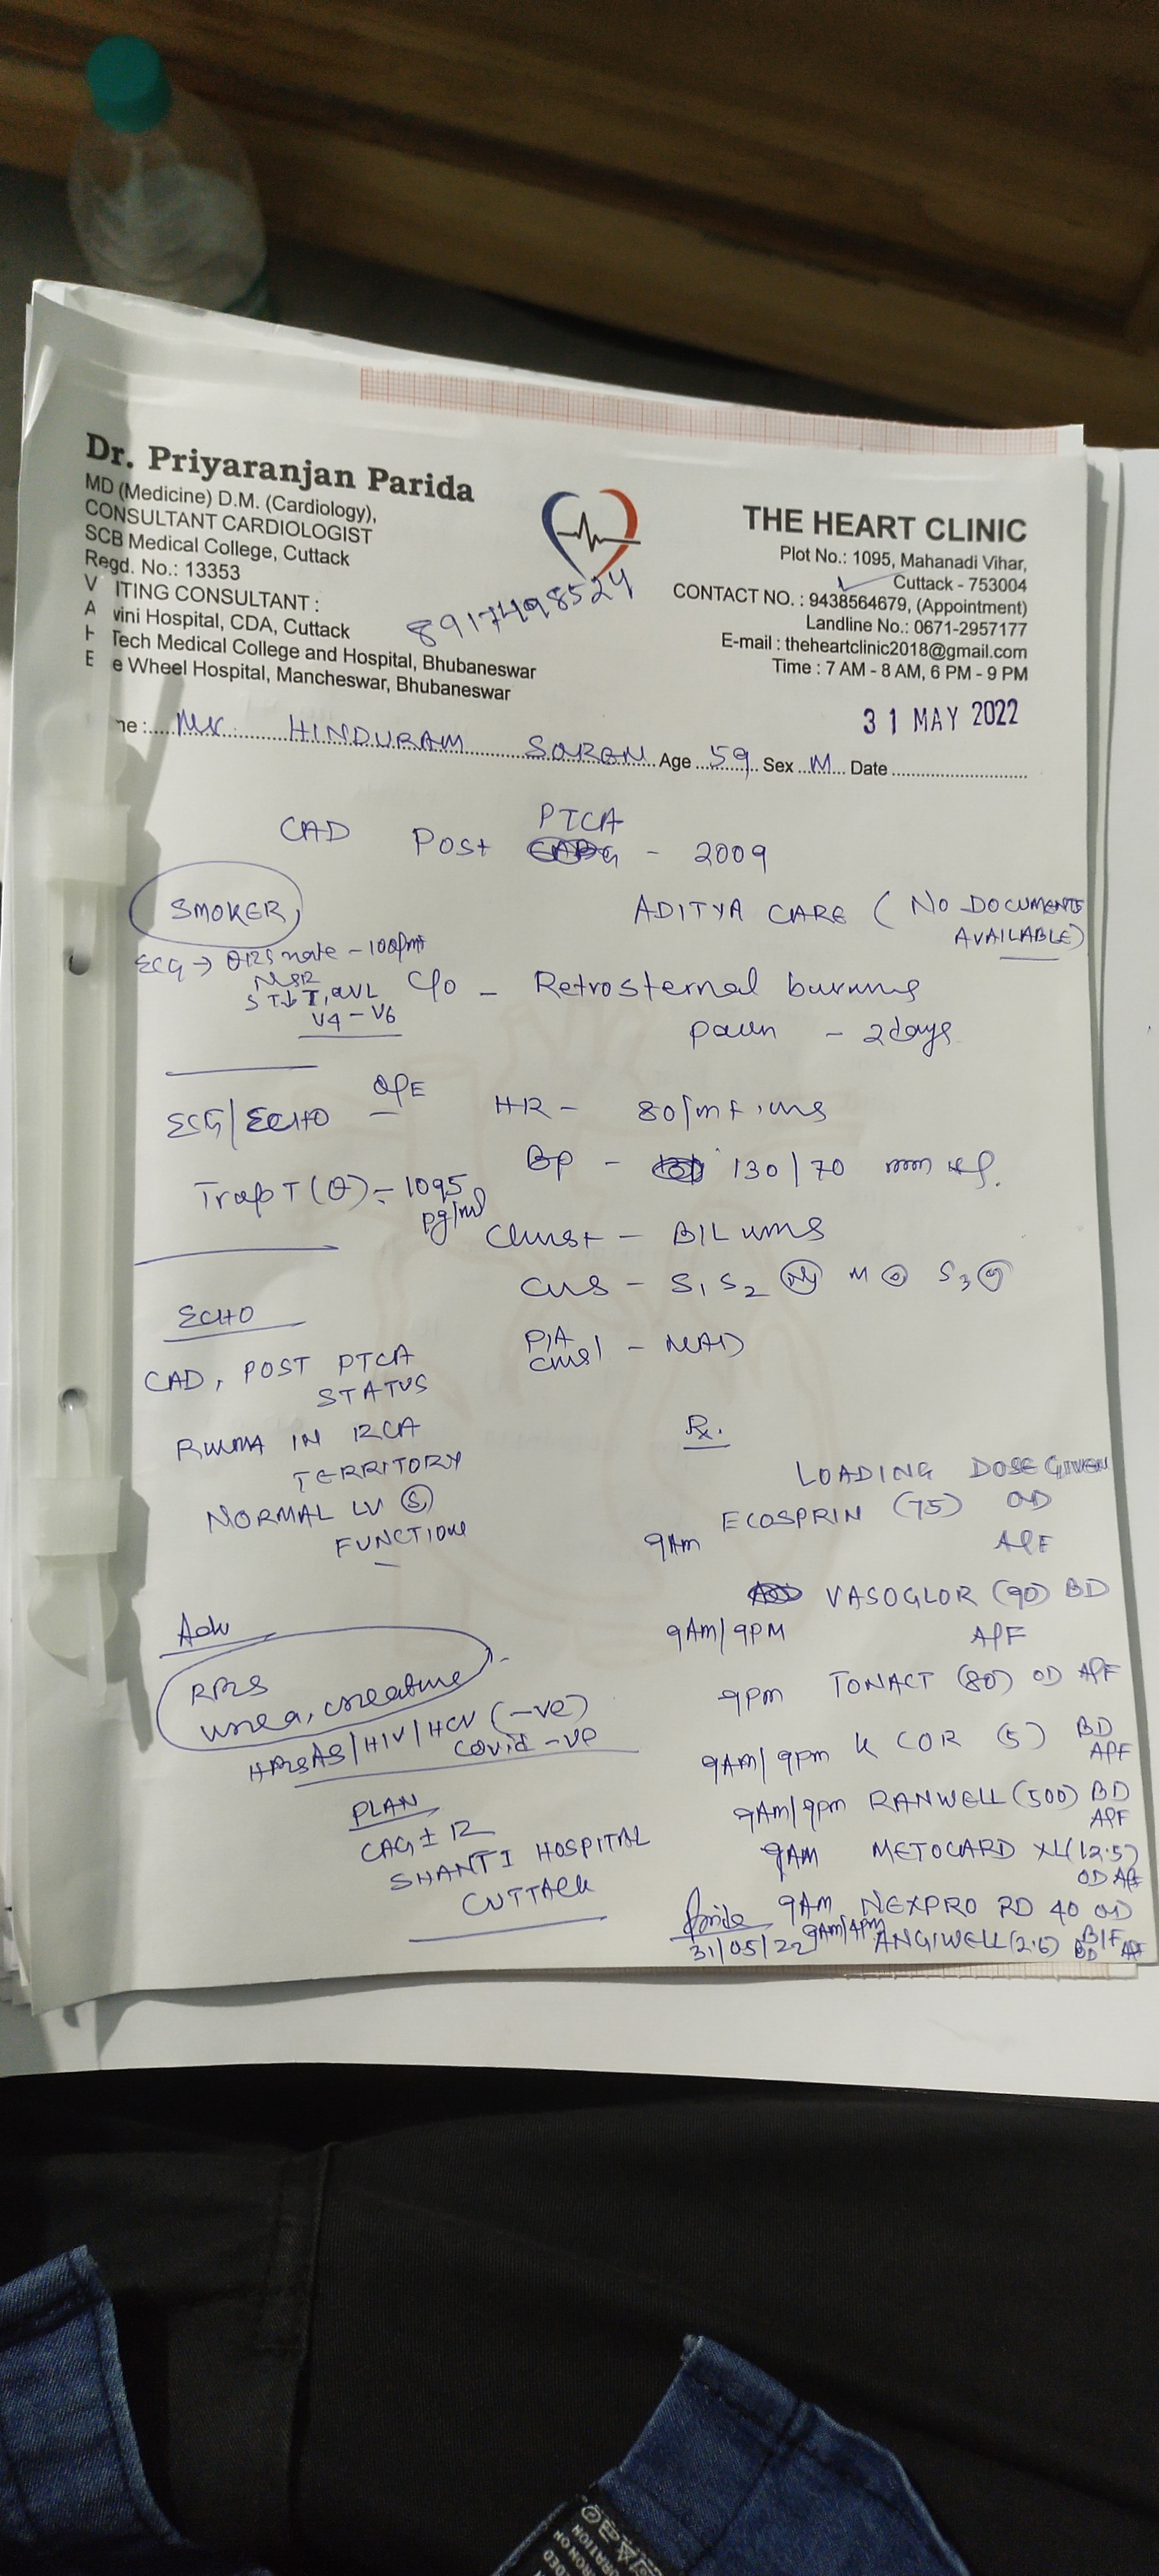 Dr. Priyaranjan Parida
MD (Medicine) D.M. (Cardiology),
CONSULTANT CARDIOLOGIST
SCB Medical College, Cuttack
Regd. No.: 13353
V ITING CONSULTANT :
A vini Hospital, CDA, Cuttack
H Tech Medical College and Hospital, Bhubaneswar
E e Wheel Hospital, Mancheswar, Bhubaneswar
8917498524
THE HEART CLINIC
Plot No.: 1095, Mahanadi Vihar,
Cuttack - 753004
CONTACT NO. : 9438564679, (Appointment)
Landline No.: 0671-2957177
E-mail : theheartclinic2018@gmail.com
Time : 7 AM - 8 AM, 6 PM - 9 PM
31 MAY 2022
me : Mr. HINDURAM SOREN Age 59 Sex M Date
CAD Post PTCA - 2009
SMOKER,
ADITYA CARE (NO DOCUMENTS
AVAILABLE)
ECG → rate - 100/mt
NSR
ST↓ I, aVL
V4 - V6
C/o - Retrosternal burning
pain - 2 days
ECG/ECHO
O/E
HR - 80/mt
BP - 130/70 mm Hg.
Trop T (+) = 1095
pg/ml
Chest - B/L
CVS - S1 S2 M S3
P/A
CNS - NAD
ECHO
CAD, POST PTCA
STATUS
RWMA IN RCA
TERRITORY
NORMAL LV (S)
FUNCTION
Rx.
LOADING DOSE GIVEN
9AM ECOSPRIN (75) OD
A/F
VASOGLOR (90) BD
9AM/9PM A/F
9PM TONACT (80) OD A/F
9AM/9PM K COR (5) BD
A/F
9AM/9PM RANWELL (500) BD
A/F
9AM METOCARD XL (12.5)
OD A/F
9AM NEXPRO RD 40 OD
B/F
9AM/4PM ANGIWELL (2.6) BD A/F
Adv
RBS
urea, creatinine
HBsAg/HIV/HCV (-ve)
Covid -ve
PLAN
CAG ± R
SHANTI HOSPITAL
CUTTACK
31/05/22